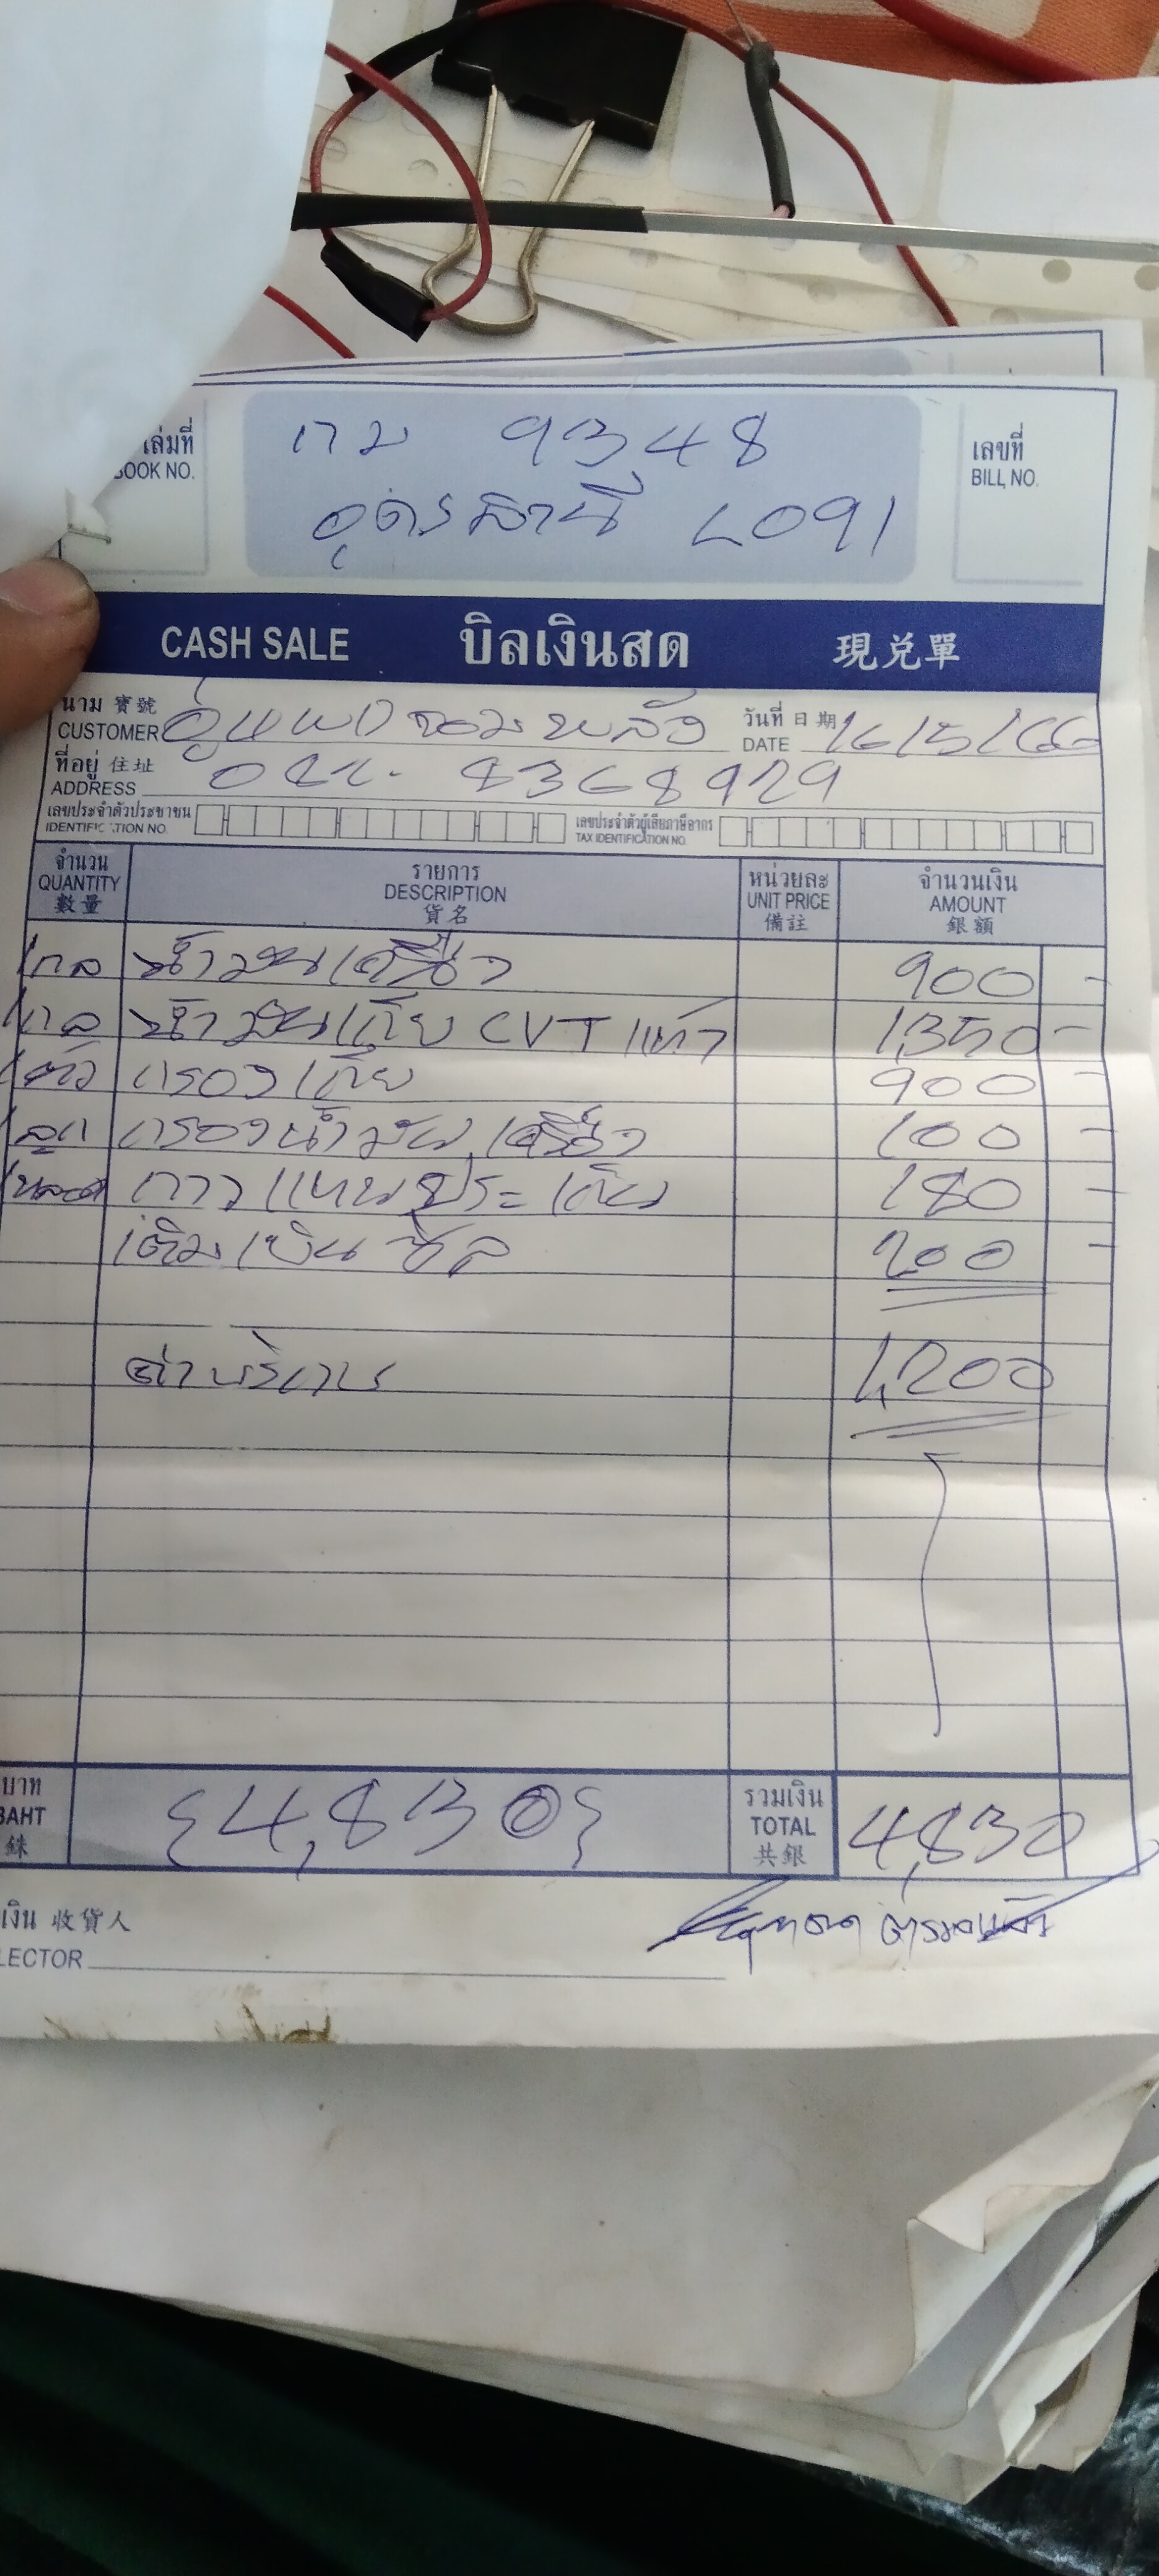 เล่มที่
BOOK NO.
กม 9348
อุดรธานี L091
เลขที่
BILL NO.
CASH SALE บิลเงินสด 現兑單
นาม 寶號
CUSTOMER อู่
วันที่ 日期
DATE 16/5/66
ที่อยู่ 住址
ADDRESS 8368929
เลขประจำตัวประชาชน
IDENTIFICATION NO.
เลขประจำตัวผู้เสียภาษีอากร
TAX IDENTIFICATION NO.
จำนวน QUANTITY 數量
รายการ DESCRIPTION 貨名
หน่วยละ UNIT PRICE 備註
จำนวนเงิน AMOUNT 銀額
1กล น้ำมันเครื่อง 900 -
1กล น้ำมันเกียร์ CVT แท้ว 1,350 -
1ตัว กรองเกียร์ 900 -
1ลูก กรองน้ำมันเครื่อง 100 -
1หลอด กาวแทนประเก็น 180 -
เติมเบนซิล 200 -
ค่าบริการ 1,200
บาท
BAHT
銖
{4,830}
รวมเงิน
TOTAL
共銀
4,830
เงิน 收貨人
LECTOR